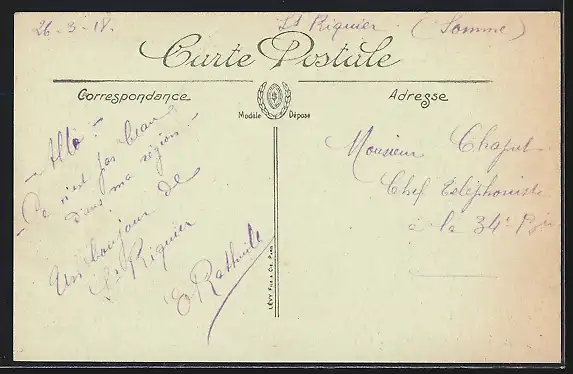 26-3-18.
St Riquier. (Somme)
Carte Postale
Correspondance
Adresse
Modèle Déposé
- Allo! -
- Ce n'est pas beau
dans ma région! -
Un bonjour de
St Riquier
E
Monsieur Chaput
Chef téléphoniste
à la 34e
LÉVY FILS & Cie, PARIS